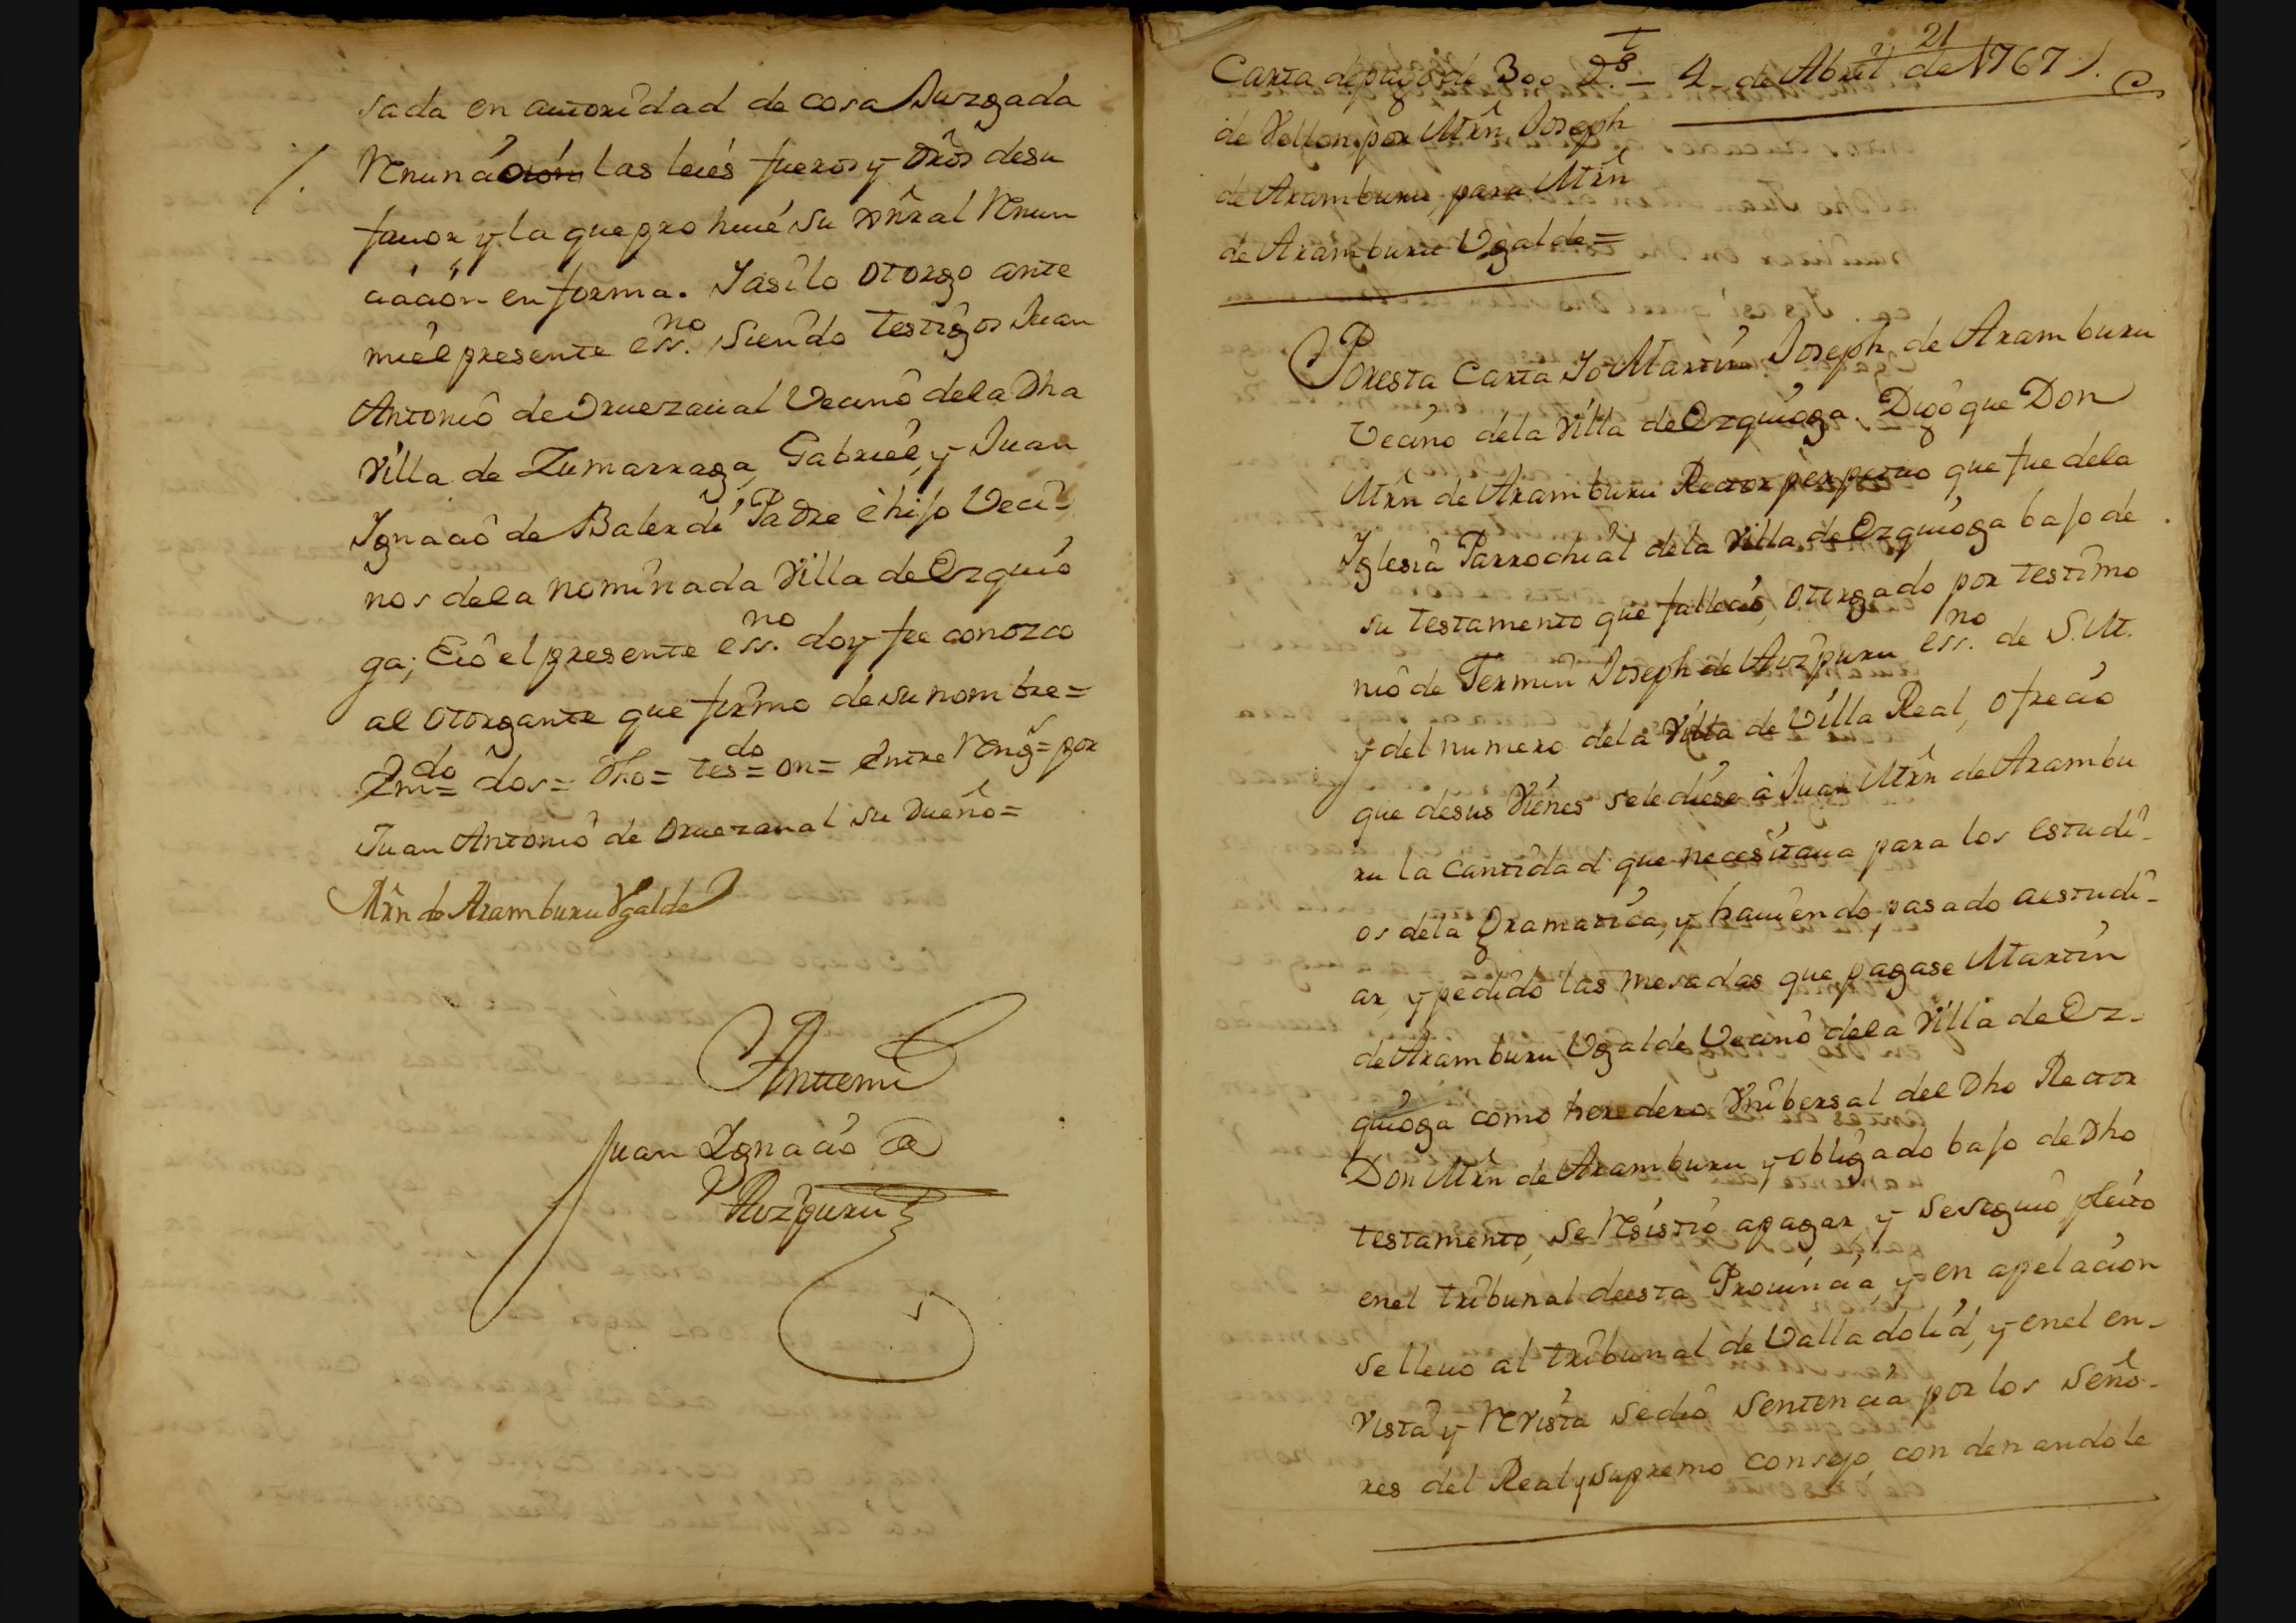 sada en autoridad de cosa Juzgada
Renunció las leies fueros y dr̃os desu
fauor y la que prohiue su gñral Renun
ciacion en forma. Iasilo otorgo ante
mi el presente ess.no siendo testigos Juan
Antonio de Oruezaual Vecino dela Dha
Villa de Zumarraga, Gabriel, y Juan
Ignacio de Balerdi Padre è hijo Veci-
nos dela nominada Villa de Ezquio
ga; Eió el presente ess.no doy fee conozco
al otorgante que firmo desu nombre=
Em.do= dos= Dho= tes.do= on= Entre Reng.s= por
Juan Antonio de Oruezaual su Dueño=
Mr̃n de Aramburu Ugalde
Antemi
Juan Ignacio de
Aozpuru
21
Carta depago de 300 D.s – 4 de Abril de 1767
de Vellon por Mr̃n Joseph
de Aramburu, para Mr̃n
de Aramburu Ugalde=
Poresta Carta Io Martin Joseph de Aramburu
Vecino dela Villa de Ezquioga. Digo que Don
Mr̃n de Aramburu Rector perpetuo que fue dela
Iglesia Parrochial dela Villa de Ezquioga bajo de
su testamento que falleció, otorgado por testimo
nio de Fermin Joseph de Aozpuru ess.no de S.M.
y del numero dela Villa de Villa Real, ofrecio
que desus Vienes sele diese à Juan Mr̃n de Arambu
ru la Cantidad que necesitaua para los estudi-
os dela Gramatica, y hauiendo pasado aestudi-
ar, y pedido las mesadas que pagase Martin
de Aramburu Ugalde Vecino dela Villa de Ez-
quioga como heredero Vnibersal del Dho Rector
Don Mr̃n de Aramburu y obligado bajo de Dho
testamento, se Resistió apagar, y sesiguio pleito
enel tribunal deesta Prouincia, y en apelacion
se lleuo al tribunal de Valladolid, y enel en-
vista y Revista sedió sentencia por los Seño-
res del Real y supremo consejo, condenandole